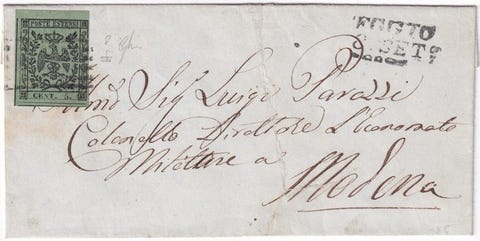 POSTE ESTENSI
CENT. 5.
EGGIO
SET
Sig Luigi Parozzi
Colonello Direttore L'Economato
Militare a
Modena